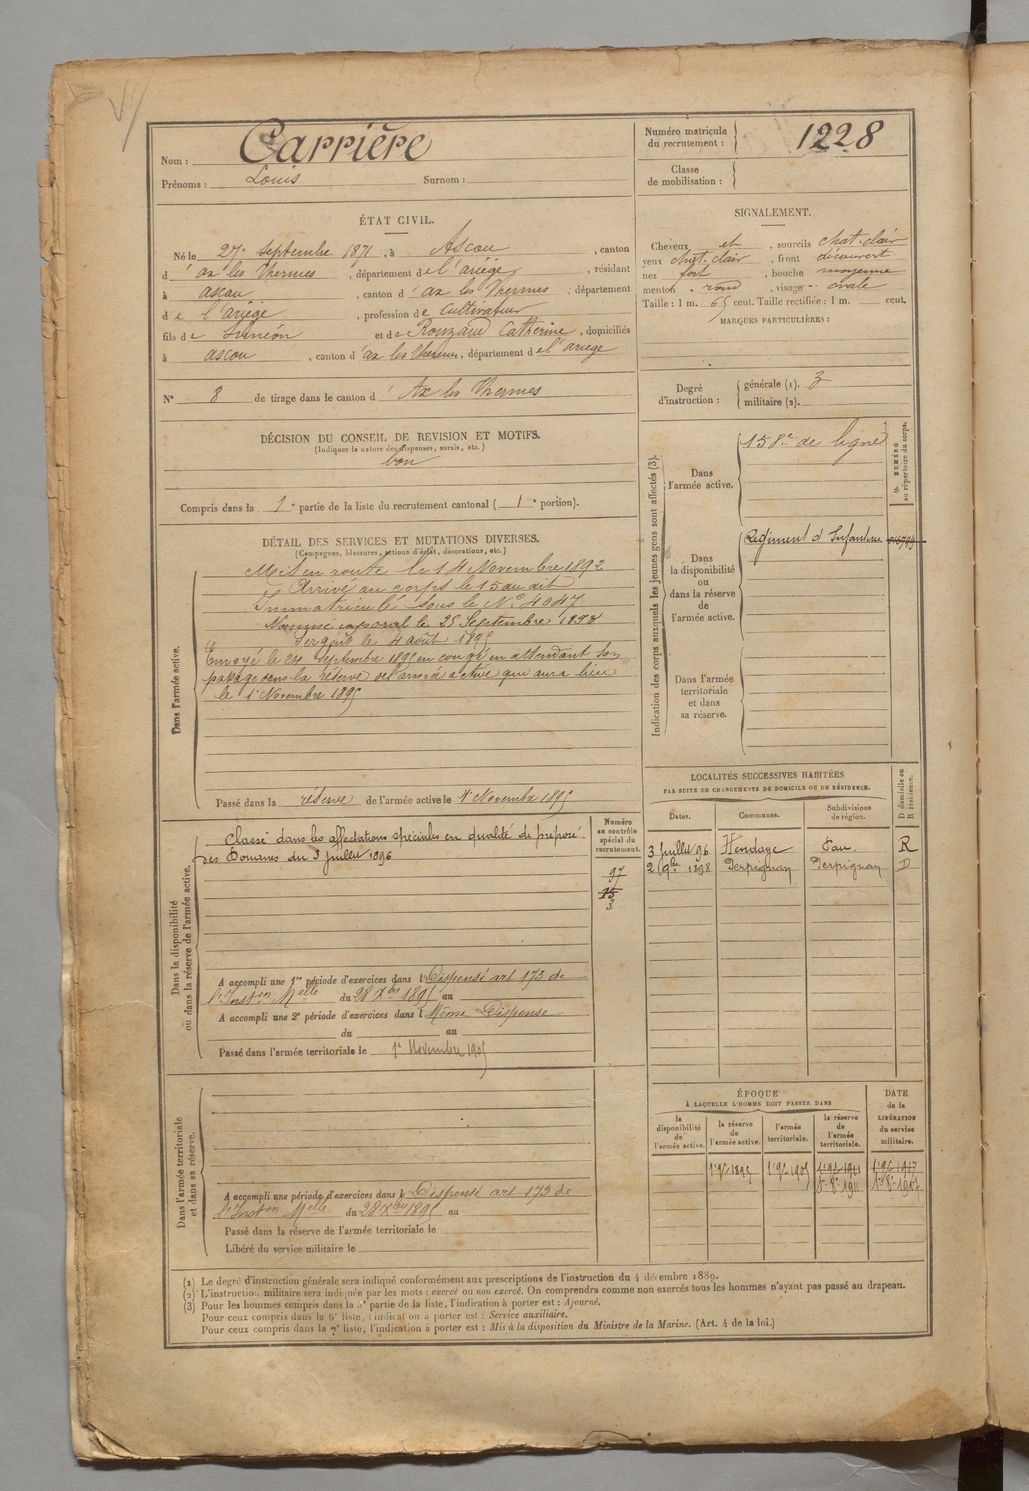 Nom : Carrière
Prénoms : Louis Surnom :
Numéro matricule
du recrutement : 1228
Classe
de mobilisation :
ÉTAT CIVIL.
Né le 27 Septembre 1871, à Ascou, canton
d' ax les Thermes, département de l'ariège, résidant
à ascou, canton d' ax les Thermes, département
de l'ariège, profession de Cultivateur
fils de Siméon et de Rouzaud Catherine, domiciliés
à ascou, canton d'ax les Thermes, département de l'ariège
N° 8 de tirage dans le canton d' Ax les Thermes
SIGNALEMENT.
Cheveux et, sourcils chat. clair
yeux chat. clair, front découvert
nez fort, bouche moyenne
menton rond, visage ovale
Taille : 1 m. 65 cent. Taille rectifiée : 1 m. cent.
MARQUES PARTICULIÈRES :
Degré
d'instruction :
générale (1). 3
militaire (2).
DÉCISION DU CONSEIL DE REVISION ET MOTIFS.
(Indiquer la nature des dispenses, sursis, etc.)
bon
Compris dans la 1e partie de la liste du recrutement cantonal ( 1e portion).
DÉTAIL DES SERVICES ET MUTATIONS DIVERSES.
(Campagnes, blessures, actions d'éclat, décorations, etc.)
Dans l'armée active.
Mis en route le 14 Novembre 1892
Arrivé au corps le 15 au dit
Immatriculé sous le N° 4047
Nommé caporal le 25 Septembre 1893
Sergent le 4 août 1895
Envoyé le 24 Septembre 1895 en congé en attendant son
passage dans la réserve de l'armée active qui aura lieu
le 1e Novembre 1895
Passé dans la réserve de l'armée active le 1e Novembre 1895
Indication des corps auxquels les jeunes gens sont affectés (3).
NUMÉRO
au répertoire du corps.
Dans
l'armée active.
158e de ligne
Dans
la disponibilité
ou
dans la réserve
de
l'armée active.
Régiment d'Infanterie
Dans l'armée
territoriale
et dans
sa réserve.
Dans la disponibilité
ou dans la réserve de l'armée active.
Classé dans les affectations spéciales en qualité de préposé
des Douanes du 3 juillet 1896
Numéro
au contrôle
spécial du
recrutement.
97
15
3
A accompli une 1re période d'exercices dans l Dispensé art 173 de
l'Inston Melle du 28 Xbre 1895 au
A accompli une 2e période d'exercices dans l Même Dispense
du au
Passé dans l'armée territoriale le 1e Novembre 1905
LOCALITÉS SUCCESSIVES HABITÉES
PAR SUITE DE CHANGEMENTS DE DOMICILE OU DE RÉSIDENCE.
Dates. Communes. Subdivisions
de région. D domicile ou
R résidence.
3 Juillet 96 Hendaye Pau R
2 9bre 1898 Perpignan Perpignan D
Dans l'armée territoriale
et dans sa réserve.
A accompli une période d'exercices dans l Dispensé art 173 de
l'Inston Melle du 28 Xbre 1895 au
Passé dans la réserve de l'armée territoriale le
Libéré du service militaire le
ÉPOQUE
À LAQUELLE L'HOMME DOIT PASSER DANS
DATE
de la
LIBÉRATION
du service
militaire.
la
disponibilité
de
l'armée active.
la réserve
de
l'armée active.
l'armée
territoriale.
la réserve
de
l'armée
territoriale.
1e 9bre 1895 1e 9bre 1905 1e 9bre 1911 1e 9bre 1917
(1) Le degré d'instruction générale sera indiqué conformément aux prescriptions de l'instruction du 4 décembre 1889.
(2) L'instruction militaire sera indiquée par les mots : exercé ou non exercé. On comprendra comme non exercés tous les hommes n'ayant pas passé au drapeau.
(3) Pour les hommes compris dans la 5e partie de la liste, l'indication à porter est : Ajourné.
Pour ceux compris dans la 6e liste, l'indication à porter est : Service auxiliaire.
Pour ceux compris dans la 7e liste, l'indication à porter est : Mis à la disposition du Ministre de la Marine. (Art. 4 de la loi.)